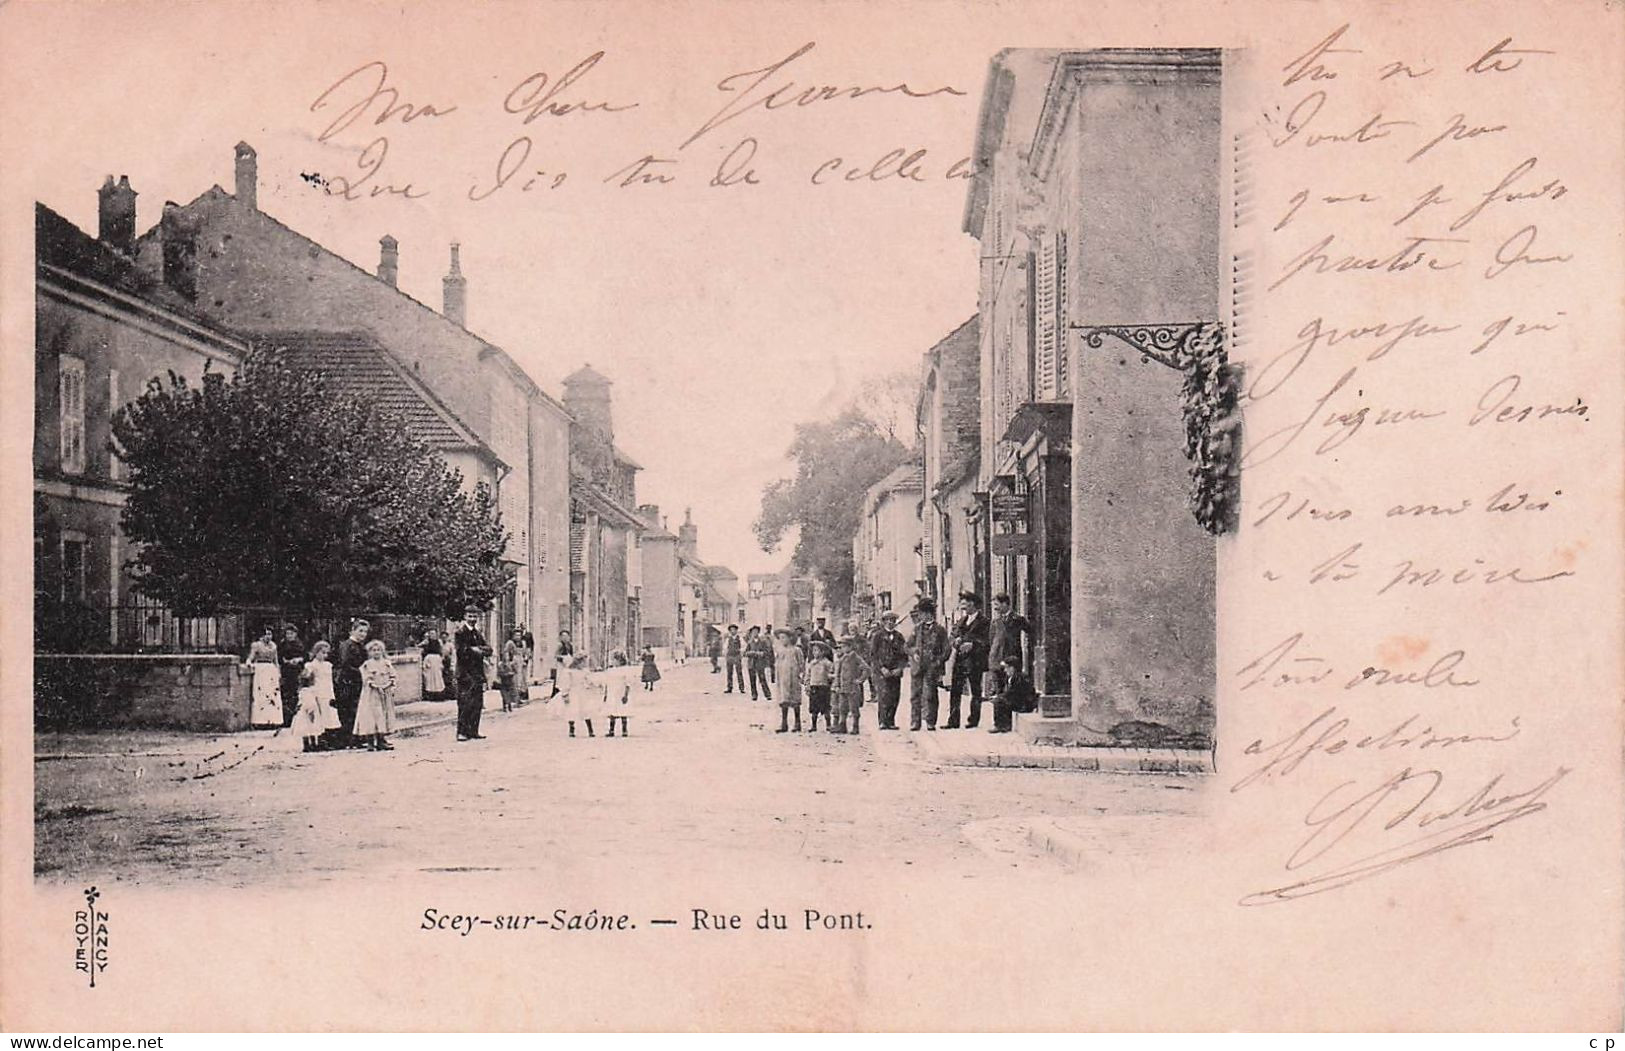 Ma chère Jeanne
Que dis tu de celle ci
tu ne te
doute pas
que je fais
partie du
groupe qui
figure dessus.
Mes amitiés
a ta mère
Ton oncle
affectionné
ROYER
NANCY
Scey-sur-Saône. — Rue du Pont.
www.delcampe.net
c p